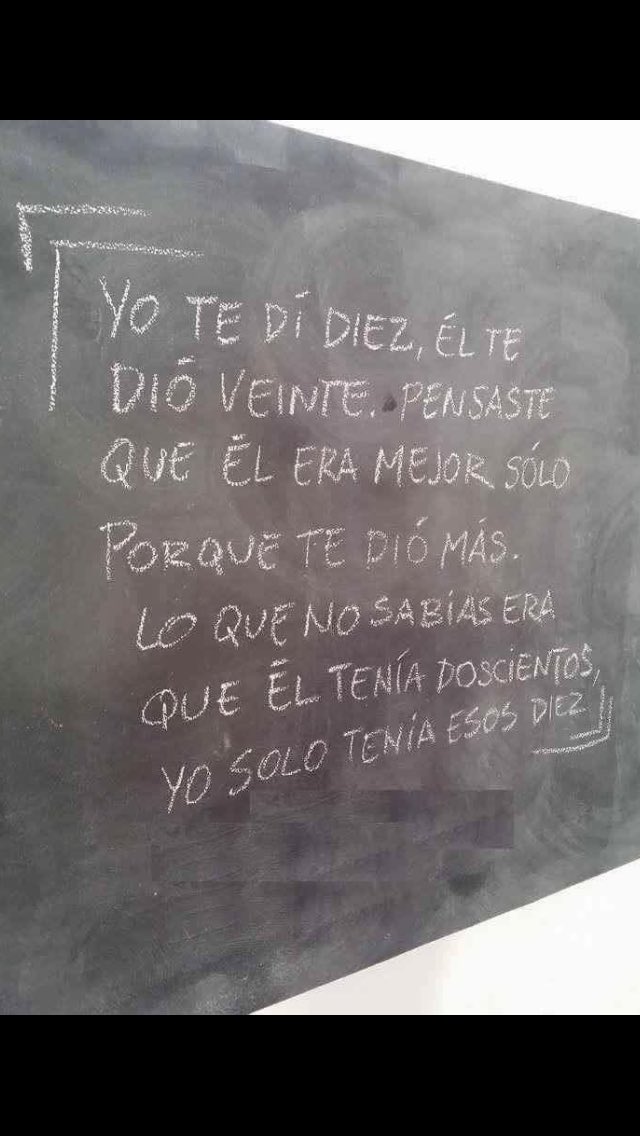 YO TE DÍ DIEZ, ÉL TE
DIÓ VEINTE. PENSASTE
QUE ÉL ERA MEJOR SÓLO
PORQUE TE DIÓ MÁS.
LO QUE NO SABÍAS ERA
QUE ÉL TENÍA DOSCIENTOS,
YO SOLO TENÍA ESOS DIEZ